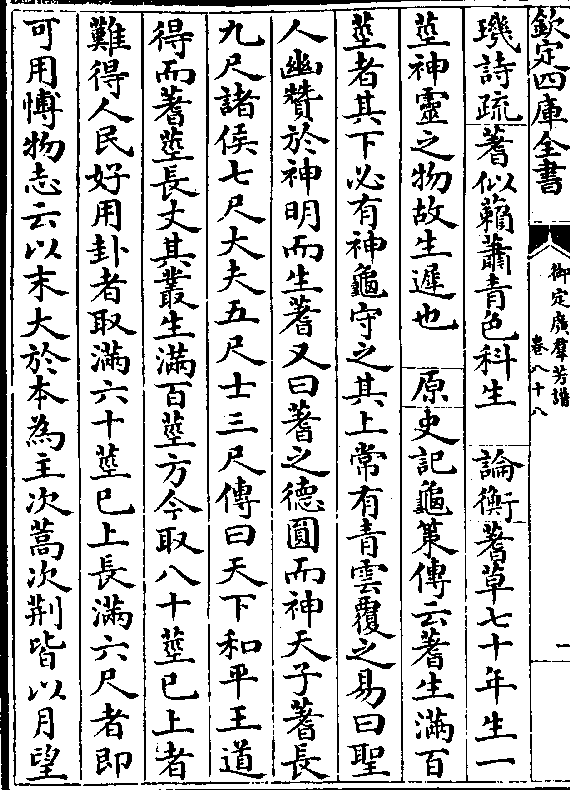 欽定四庫全書
御定廣羣芳譜
卷八十八
一
璣詩疏蓍似藾蕭青色科生 論衡蓍草七十年生一
莖神靈之物故生遲也 原史記龜䇿傳云蓍生滿百
莖者其下必有神龜守之其上常有青雲覆之易曰聖
人幽贊於神明而生蓍又曰蓍之德圓而神天子蓍長
九尺諸侯七尺大夫五尺士三尺傳曰天下和平王道
得而蓍莖長丈其叢生滿百莖方今取八十莖已上者
難得人民好用卦者取滿六十莖已上長滿六尺者即
可用愽物志云以末大於本為主次蒿次荆皆以月望